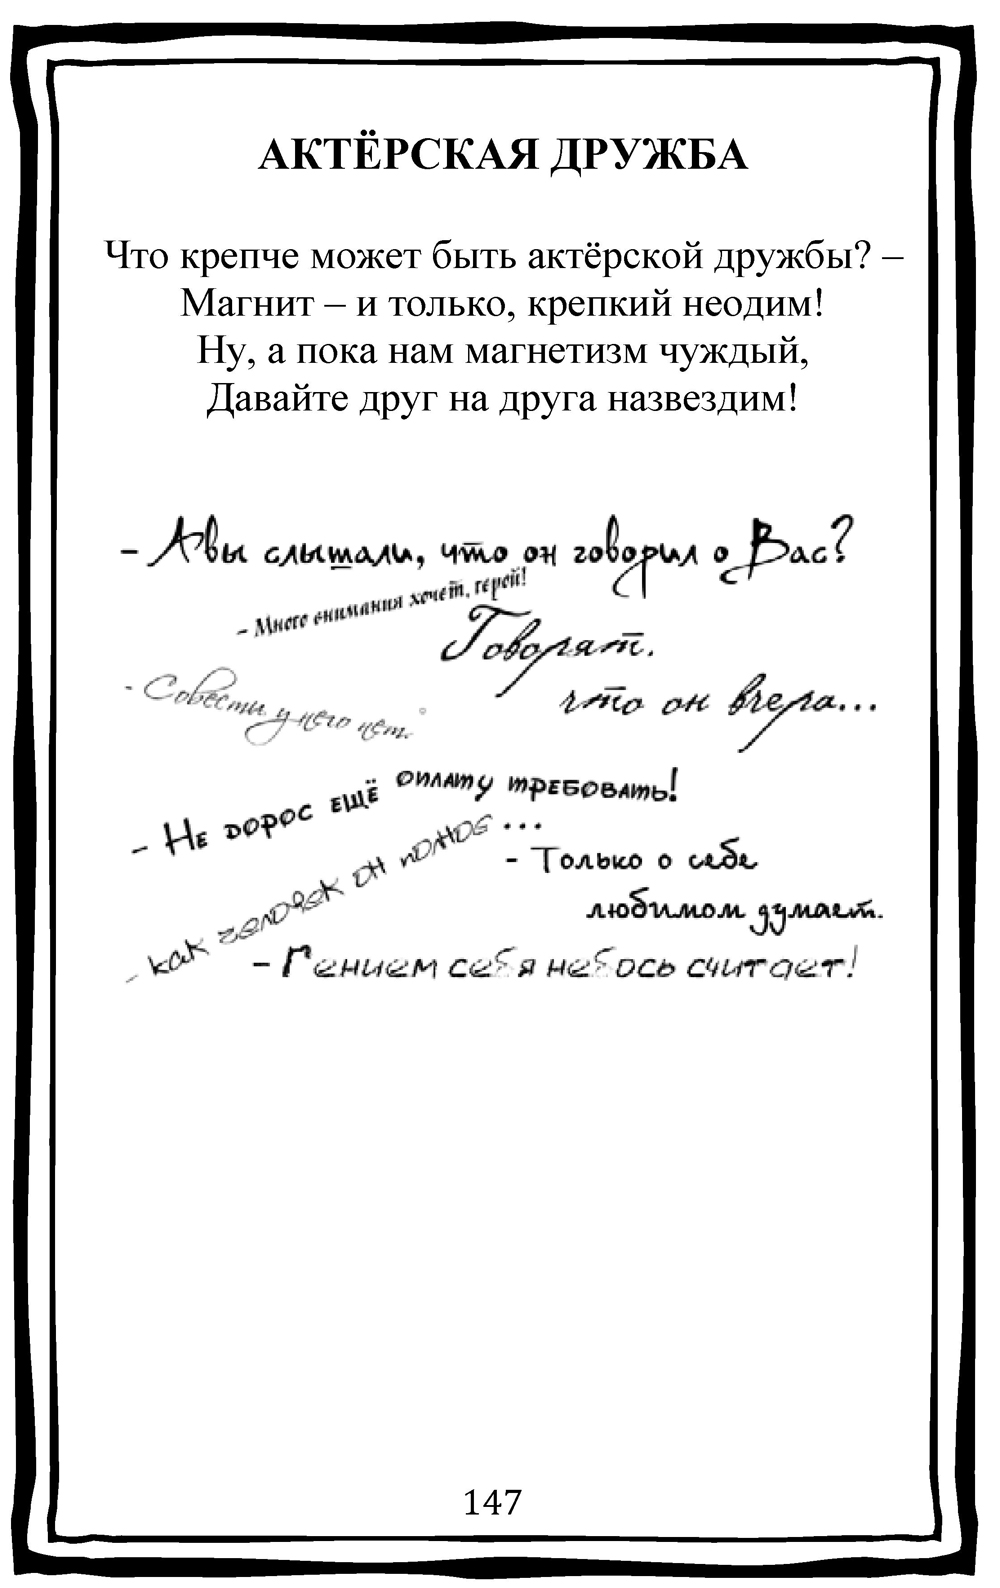 АКТЁРСКАЯ ДРУЖБА
Что крепче может быть актёрской дружбы? –
Магнит – и только, крепкий неодим!
Ну, а пока нам магнетизм чуждый,
Давайте друг на друга назвездим!
- А вы слышали, что он говорил о Вас?
- Много внимания хочет, герой!
Говорят,
что он вчера...
- Совести у него нет.
- Не дорос ещё оплату требовать!
- как человек он полное ...
- Только о себе
любимом думает.
- Гением себя небось считает!
147